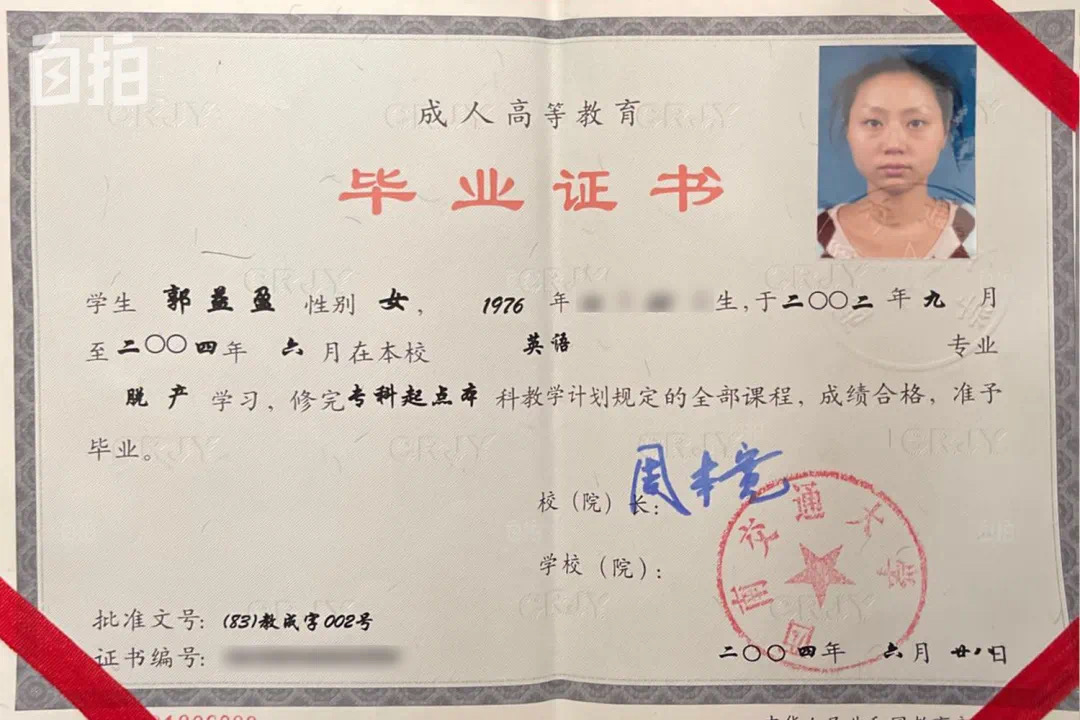 自拍
成人高等教育
毕业证书
学生 郭益盈 性别 女, 1976 年 生,于二〇〇二年九月
至二〇〇四年 六月在本校 英语 专业
脱产学习,修完专科起点本科教学计划规定的全部课程,成绩合格,准予
毕业。
校(院)长: 周本
学校(院):
西南交通大学
批准文号: (83)教成字002号
证书编号:
二〇〇四年 六月 廿八日
CRJY